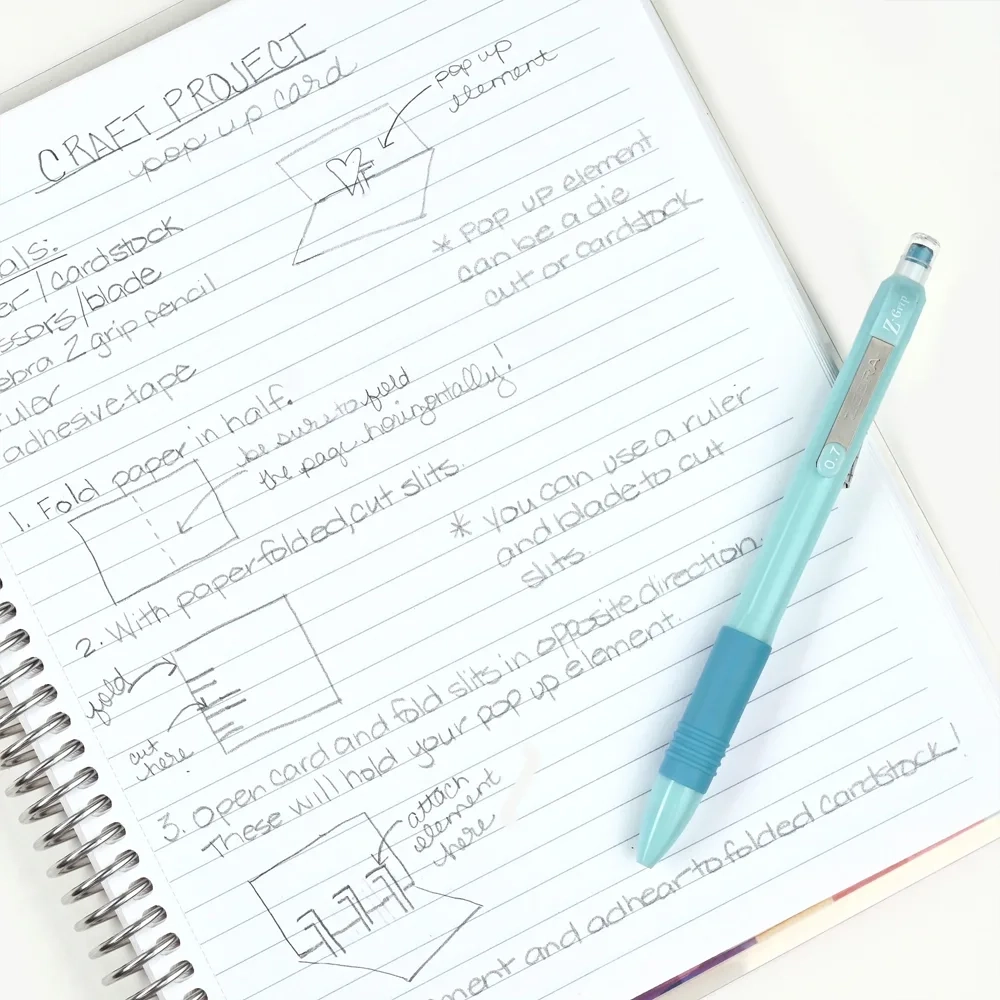 CRAFT PROJECT
pop up card
pop up
element
als:
er / cardstock
ssors/blade
ebra Z grip pencil
uler
adhesive tape
* pop up element
can be a die
cut or cardstock
1. Fold paper in half.
be sure to fold
the page horizontally!
2. With paper folded, cut slits.
* you can use a ruler
and blade to cut
slits.
fold
cut
here
3. Open card and fold slits in opposite direction.
These will hold your pop up element.
attach
element
here
ment and adhear to folded cardstock!
Z-Grip
ZEBRA
0.7